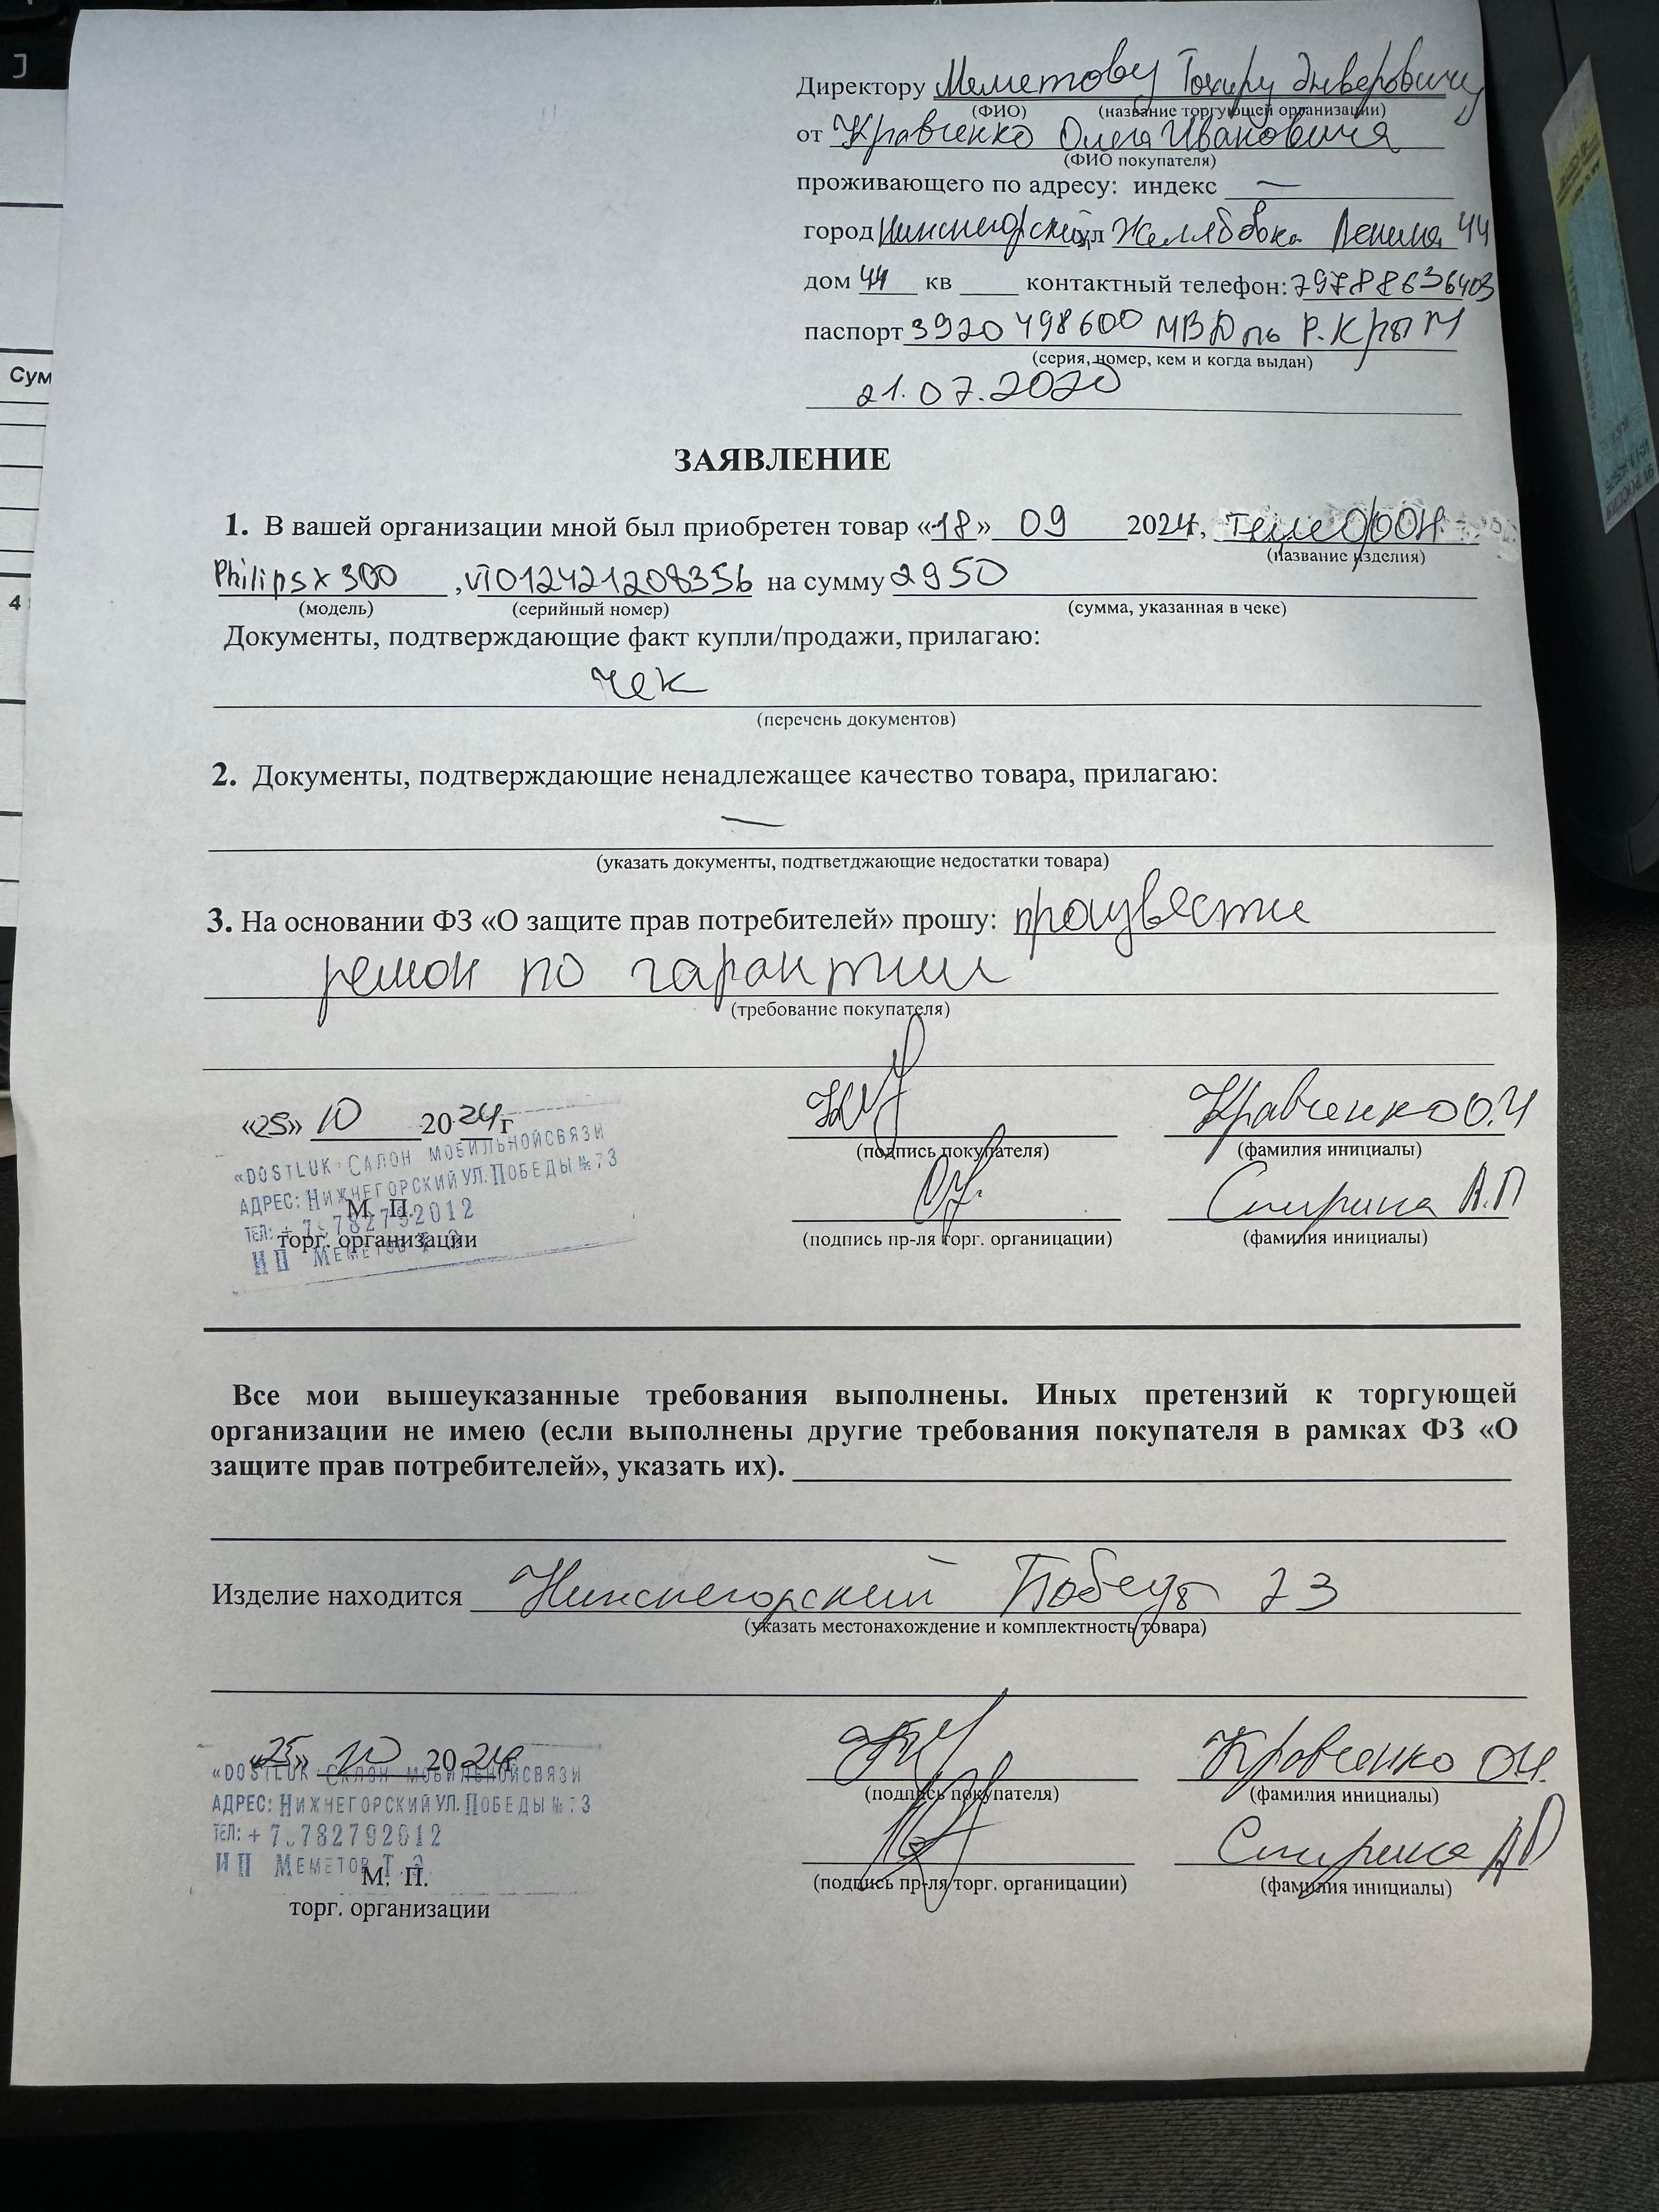 Директору Меметову Тахиру Энверовичу
(ФИО) (название торгующей организации)
от Кравченко Олега Ивановича
(ФИО покупателя)
проживающего по адресу: индекс —
город Нижнегорский ул Желябовка Ленина 44
дом 44 кв ____ контактный телефон: 79788636403
паспорт 3920 498600 МВД по Р. Крым
(серия, номер, кем и когда выдан)
21.07.2020
ЗАЯВЛЕНИЕ
1. В вашей организации мной был приобретен товар «18» 09 2024, Телефон
(название изделия)
Philips x 300 , VT012421208356 на сумму 2950
(модель) (серийный номер) (сумма, указанная в чеке)
Документы, подтверждающие факт купли/продажи, прилагаю:
чек
(перечень документов)
2. Документы, подтверждающие ненадлежащее качество товара, прилагаю:
—
(указать документы, подтветджающие недостатки товара)
3. На основании ФЗ «О защите прав потребителей» прошу: произвести
ремон по гарантии
(требование покупателя)
«25» 10 2024г Кравченко О.И
(подпись покупателя) (фамилия инициалы)
«DOSTLUK» САЛОН МОБИЛЬНОЙ СВЯЗИ
АДРЕС: НИЖНЕГОРСКИЙ УЛ. ПОБЕДЫ № 73
М. П. Спирина А.П
торг. организации (подпись пр-ля торг. органицации) (фамилия инициалы)
ИП МЕМЕТОВ Т.Э.
Все мои вышеуказанные требования выполнены. Иных претензий к торгующей
организации не имею (если выполнены другие требования покупателя в рамках ФЗ «О
защите прав потребителей», указать их).
Изделие находится Нижнегорский Победы 73
(указать местонахождение и комплектность товара)
«25» 10 2024 Кравченко О.И.
(подпись покупателя) (фамилия инициалы)
«DOSTLUK» САЛОН МОБИЛЬНОЙ СВЯЗИ
АДРЕС: НИЖНЕГОРСКИЙ УЛ. ПОБЕДЫ № 73
ИП МЕМЕТОВ Т.Э. Спирина АП
М. П. (подпись пр-ля торг. органицации) (фамилия инициалы)
торг. организации
Сум
4
J